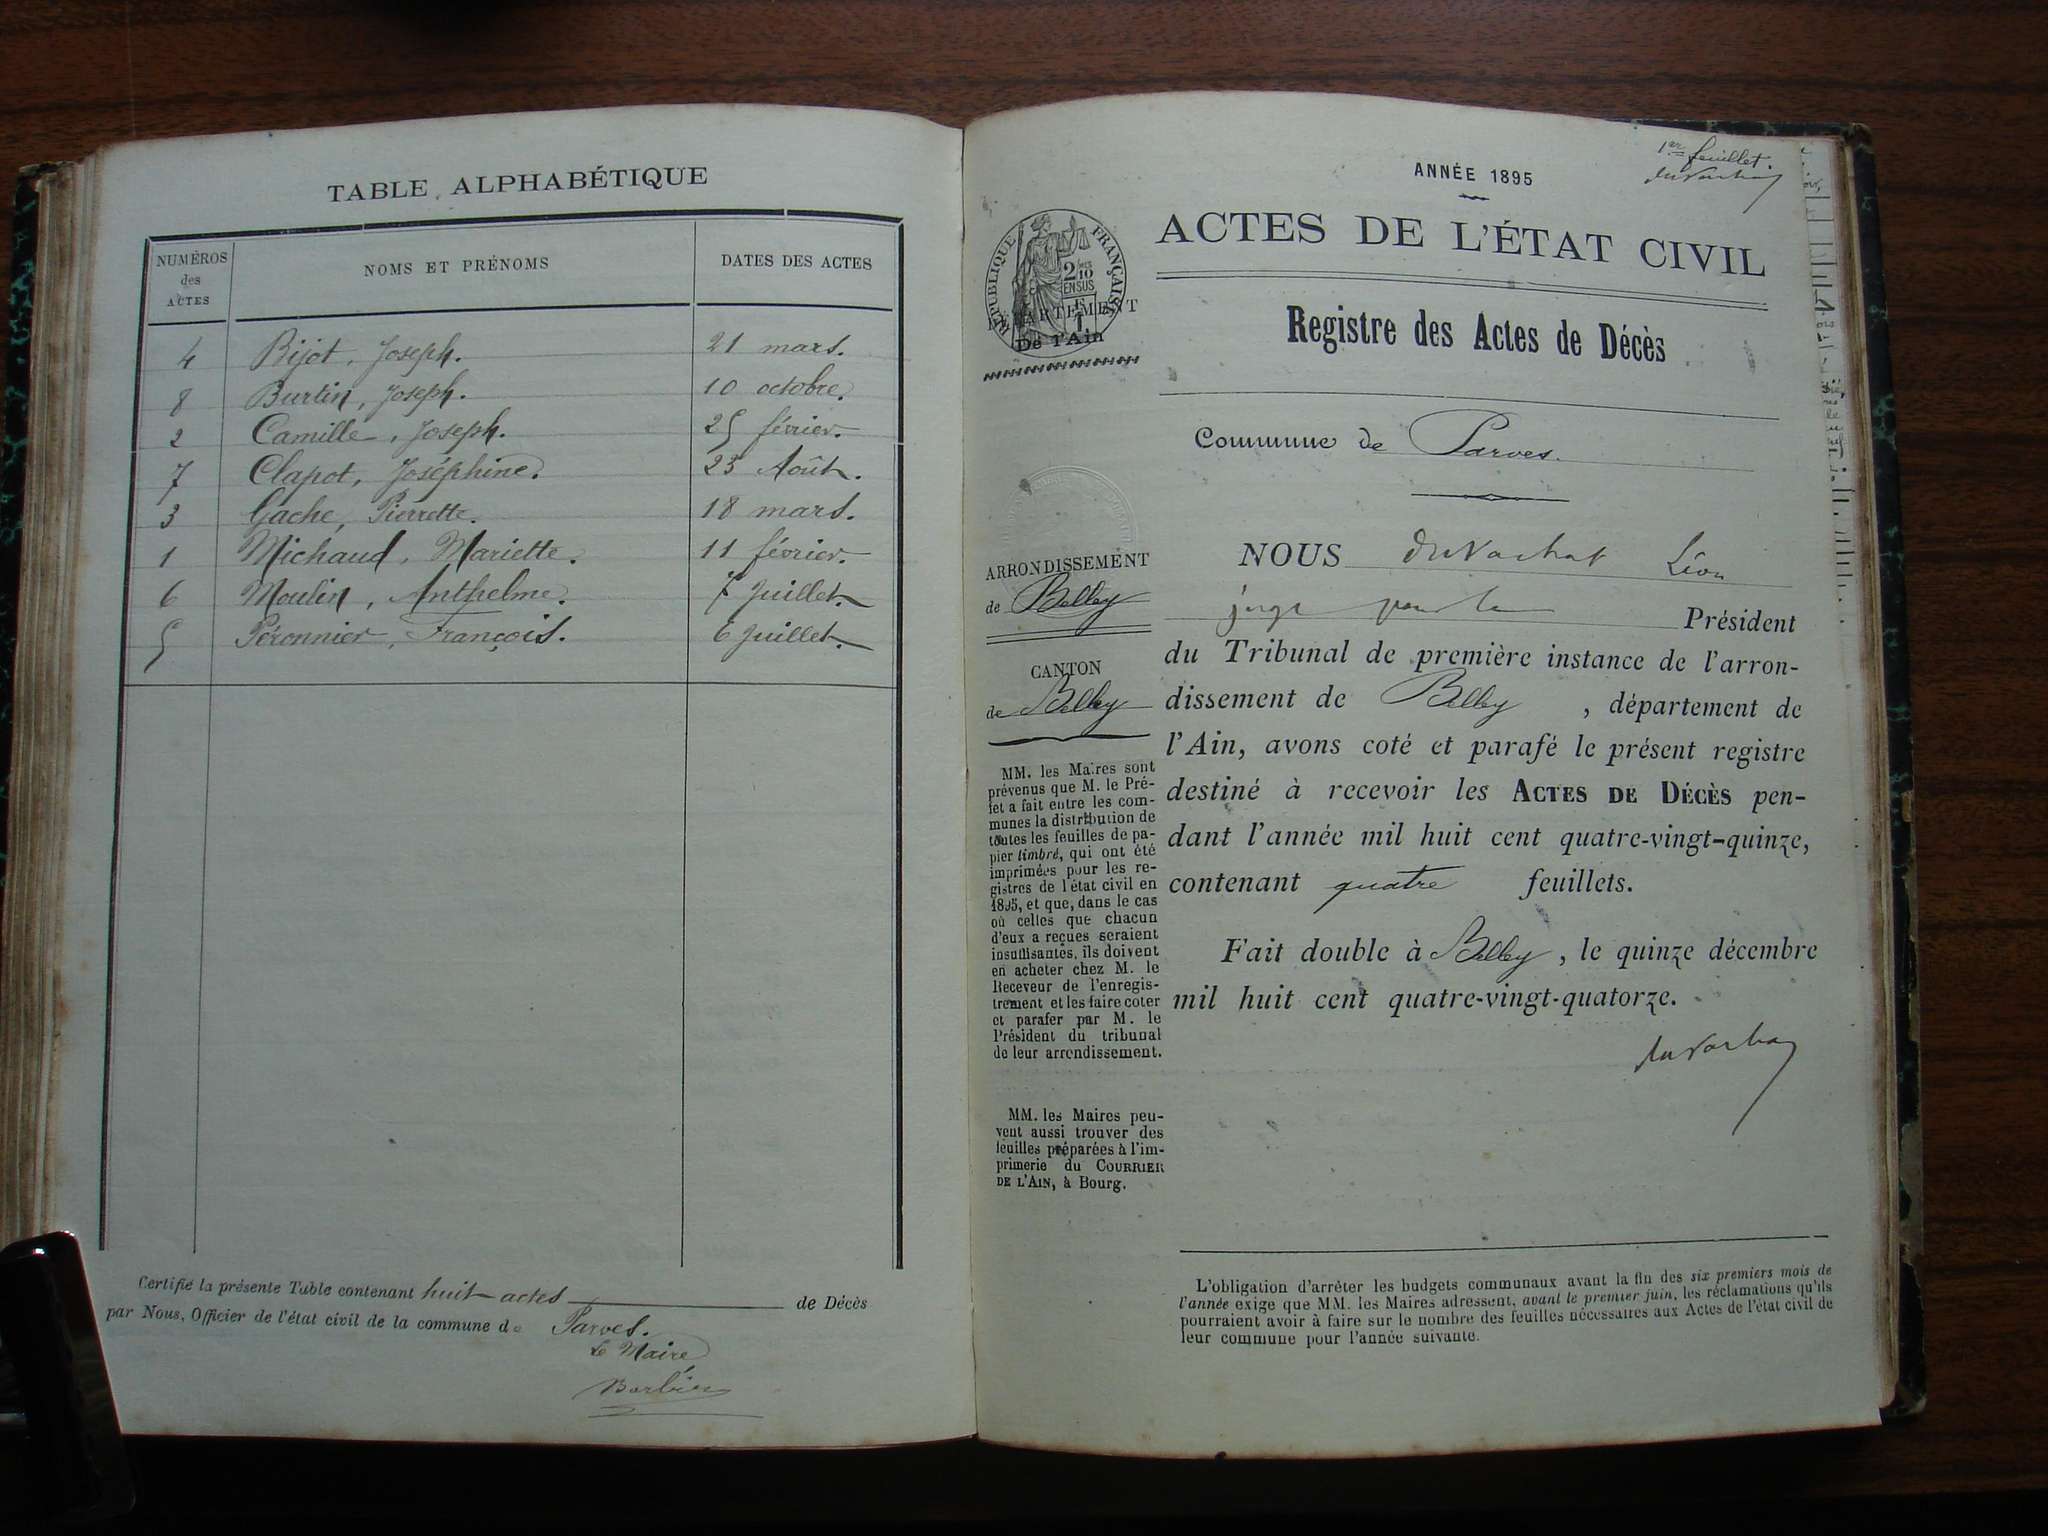 TABLE ALPHABÉTIQUE
NUMÉROS des ACTES NOMS ET PRÉNOMS DATES DES ACTES
4 Bijot, Joseph. 21 mars.
8 Burtin, Joseph. 10 octobre.
2 Camille, Joseph. 25 février.
7 Clapot, Joséphine. 23 Août.
3 Gache, Pierrette. 18 mars.
1 Michaud, Mariette. 11 février.
6 Moulin, Anthelme. 7 Juillet.
5 Péronnier, François. 6 Juillet.
Certifié la présente Table contenant huit actes de Décès
par Nous, Officier de l'état civil de la commune de Parves.
Le Maire
Barbier
1er feuillet.
ANNÉE 1895
ACTES DE L'ÉTAT CIVIL
RÉPUBLIQUE FRANÇAISE
2/10 EN SUS
DÉPARTEMENT
De l'Ain
Registre des Actes de Décès
Commune de Parves.
ARRONDISSEMENT
de Belley
CANTON
de Belley
MM. les Maires sont
prévenus que M. le Pré-
fet a fait entre les com-
munes la distribution de
toutes les feuilles de pa-
pier timbré, qui ont été
imprimées pour les re-
gistres de l'état civil en
1895, et que, dans le cas
où celles que chacun
d'eux a reçues seraient
insuffisantes, ils doivent
en acheter chez M. le
Receveur de l'enregis-
trement et les faire coter
et parafer par M. le
Président du tribunal
de leur arrondissement.
MM. les Maires peu-
vent aussi trouver des
feuilles préparées à l'im-
primerie du COURRIER
DE L'AIN, à Bourg.
NOUS duVachat Léon
juge pour le Président
du Tribunal de première instance de l'arron-
dissement de Belley, département de
l'Ain, avons coté et parafé le présent registre
destiné à recevoir les ACTES DE DÉCÈS pen-
dant l'année mil huit cent quatre-vingt-quinze,
contenant quatre feuillets.
Fait double à Belley, le quinze décembre
mil huit cent quatre-vingt-quatorze.
duVachat
L'obligation d'arrêter les budgets communaux avant la fin des six premiers mois de
l'année exige que MM. les Maires adressent, avant le premier juin, les réclamations qu'ils
pourraient avoir à faire sur le nombre des feuilles nécessaires aux Actes de l'état civil de
leur commune pour l'année suivante.